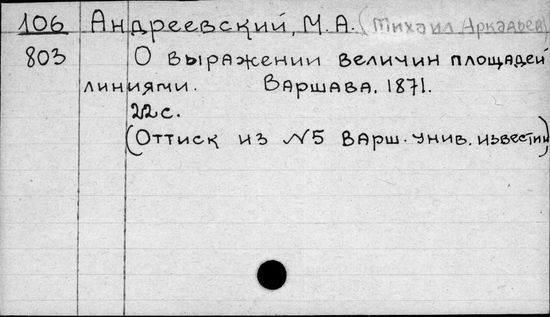 106 Андреевский, М.А. (Михаил Аркадьев
803 О выражении величин площадей
линиями. Варшава. 1871.
22 с.
(Оттиск из №5 Варш. унив. известий